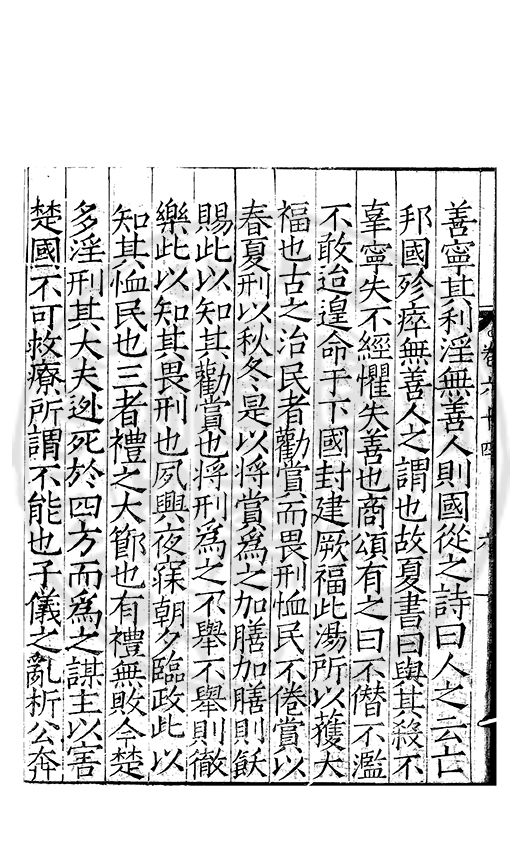 善寧其利淫無善人則國從之詩曰人之云亡
邦國殄瘁無善人之謂也故夏書曰與其殺不
辜寧失不經懼失善也商頌有之曰不僭不濫
不敢迨遑命于下國封建厥福此湯所以獲大
福也古之治民者勸賞而畏刑恤民不倦賞以
春夏刑以秋冬是以將賞為之加膳加膳則飫
賜此以知其勸賞也將刑為之不舉不舉則徹
樂此以知其畏刑也夙興夜寐朝夕臨政此以
知其恤民也三者禮之大節也有禮無敗今楚
多淫刑其大夫逃死於四方而為之謀主以害
楚國不可救療所謂不能也子儀之亂析公奔
卷六十四
六